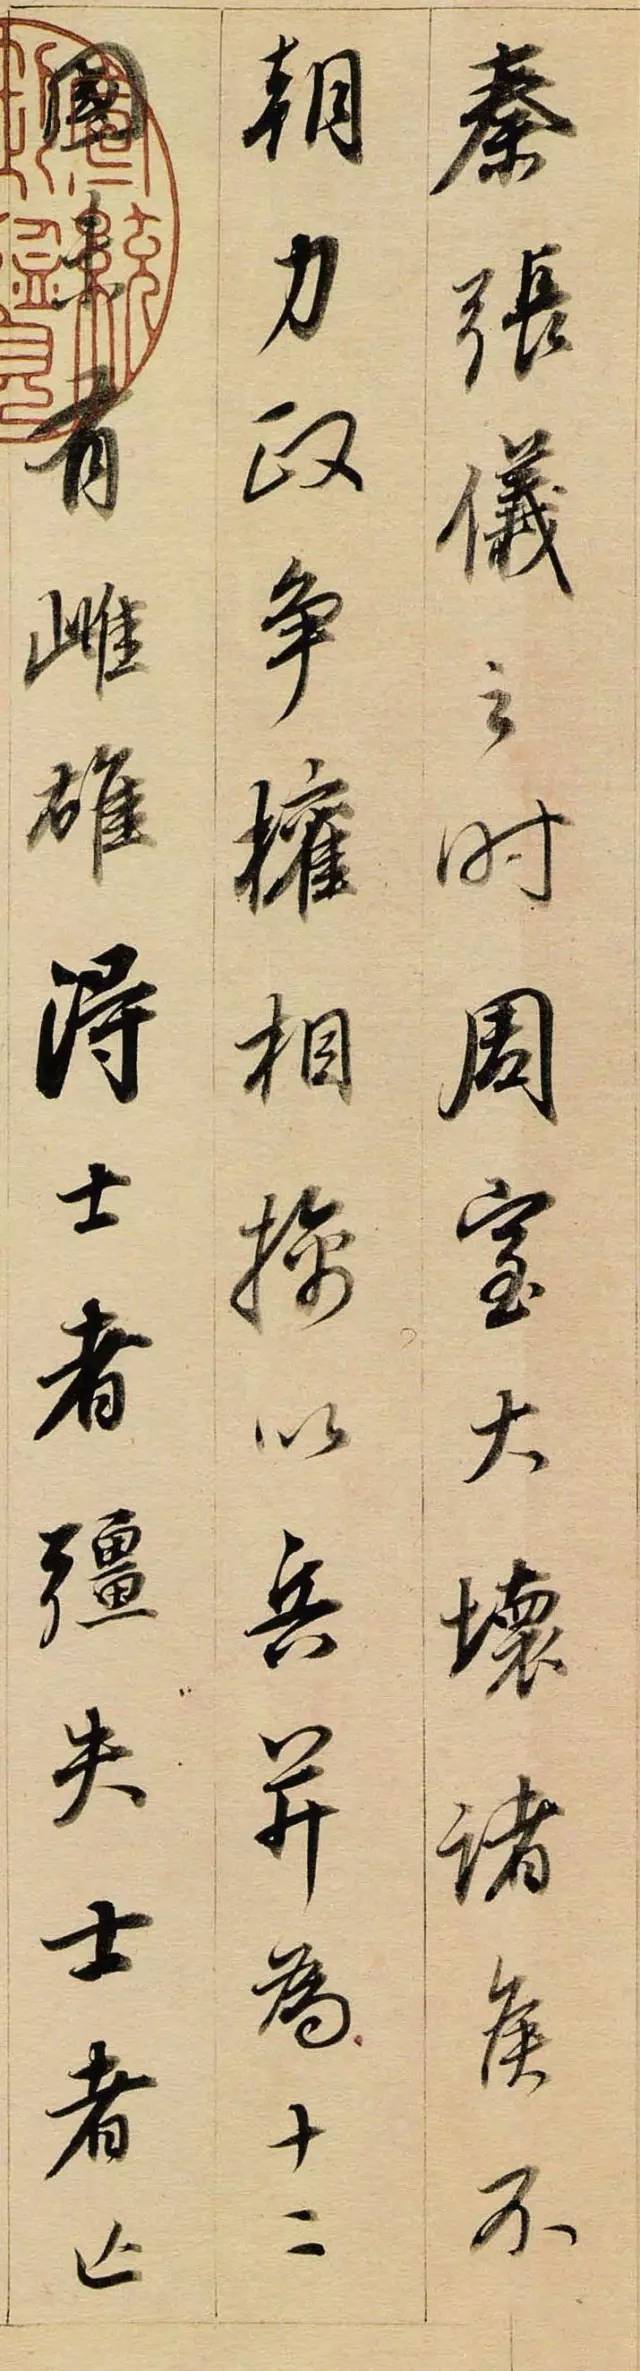 秦張儀之时周室大壞諸侯不
朝力政争權相擒以兵并為十二
國未有雌雄得士者彊失士者亡
宣統